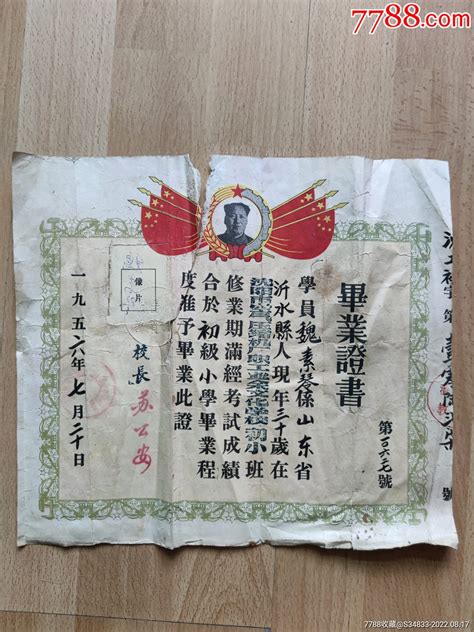 7788.com
畢業證書
第一百六二七號
學員魏素琴係山东省
沂水縣人現年三十歲在
初小班
修業期滿經考試成績
合於初級小學畢業程
度准予畢業此證
像片
校長 苏公安
一九五六年七月二十日
7788收藏@S34833-2022.08.17